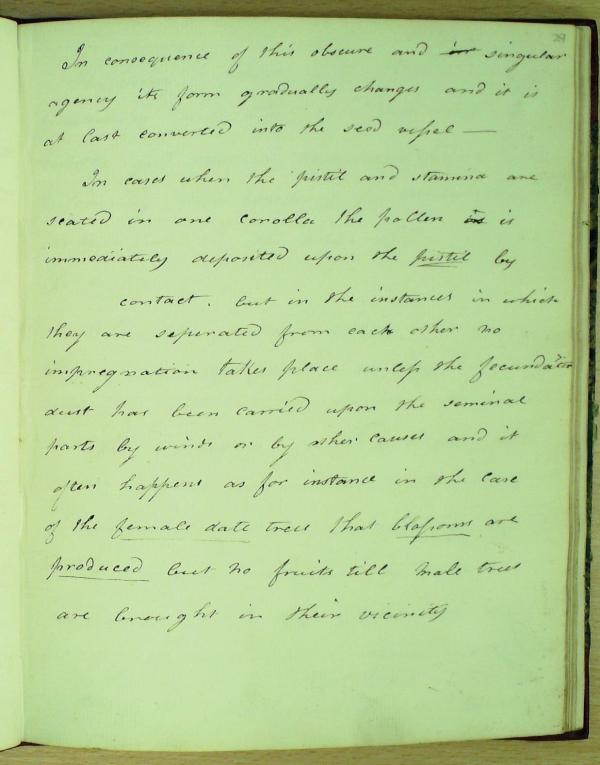 29
In consequence of this obscure and in singular
agency its form gradually changes and it is
at last converted into the seed vessel —
In cases when the pistil and stamina are
seated in one corolla the pollen is is
immediately deposited upon the pistil by
contact. but in the instances in which
they are seperated from each other no
impregnation takes place unless the fecundating
dust has been carried upon the seminal
parts by winds or by other causes and it
often happens as for instance in the case
of the female date tree that blossoms are
produced but no fruits till male trees
are brought in their vicinity